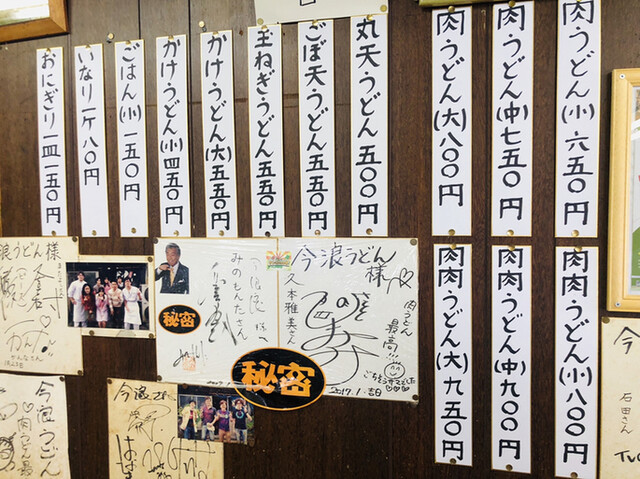 肉うどん(小)六五〇円
肉うどん(中)七五〇円
肉うどん(大)八〇〇円
丸天うどん五〇〇円
ごぼ天うどん五五〇円
玉ねぎうどん五五〇円
かけうどん(大)五五〇円
かけうどん(小)四五〇円
ごはん(小)一五〇円
いなり一ケ八〇円
おにぎり一皿一五〇円
肉肉うどん(小)八〇〇円
肉肉うどん(中)九〇〇円
肉肉うどん(大)九五〇円
今浪うどん様
久本雅美さん
肉うどん
最高!!!
ごちそうさまでした
2017.1.吉日
秘密
みのもんたさん
秘密
浪うどん様
今浪うどん
肉うどん最
今浪
今
石田さん